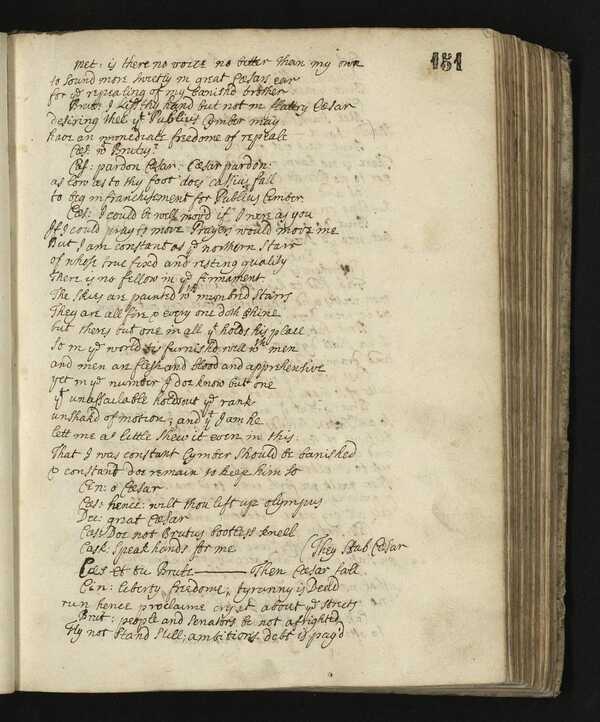 151
Met: is there no voice no better than my own
to sound more sweetly in great Cæsars ear
for ye repealing of my banish'd brother
Brut: I kiss thy hand but not in flattry Cæsar
desiring thee yt Publius Cymber may
have an immediate freedome of repeale
Cæs: wt Brutus?
Cas: pardon Cæsar: Cæsar pardon:
as low as to thy foot does cassius fall
to beg infranchisement for Publius Cimber
Cæs: I could be well mov'd if I were as you
If I could pray to move Prayers would move me
But I am constant as ye northern Starr
of whose true fixd and resting quality
There is no fellow in ye firmament.
The skies are painted wth unnumbred starrs
They are all fire & every one doth shine
but theres but one in all yt holds his place
So in ye world tis furnish'd well wth men
and men are flesh and blood and apprehensive
yet in ye number I doe know but one
yt unassailable holds out ye rank
unshakd of motion; and yt I am he
lett me a little shew it even in this:
That I was constant Cymber should be banished
& constant doe remain to keep him so
Cin: o Cæsar
Cæs: hence: wilt thou lift up olympus
Dec: great Cæsar
Cæs: Doe not Brutus bootless kneel
Cask: Speak hands for me (They stab Cæsar
Cæs Et tu Brute —— Then Cæsar fall
Cin: liberty, freedome, tyranny is Dead
run hence proclaime cry it about ye streets
Brut: people and senators be not afrighted
fly not stand still; ambitions debt is pay'd